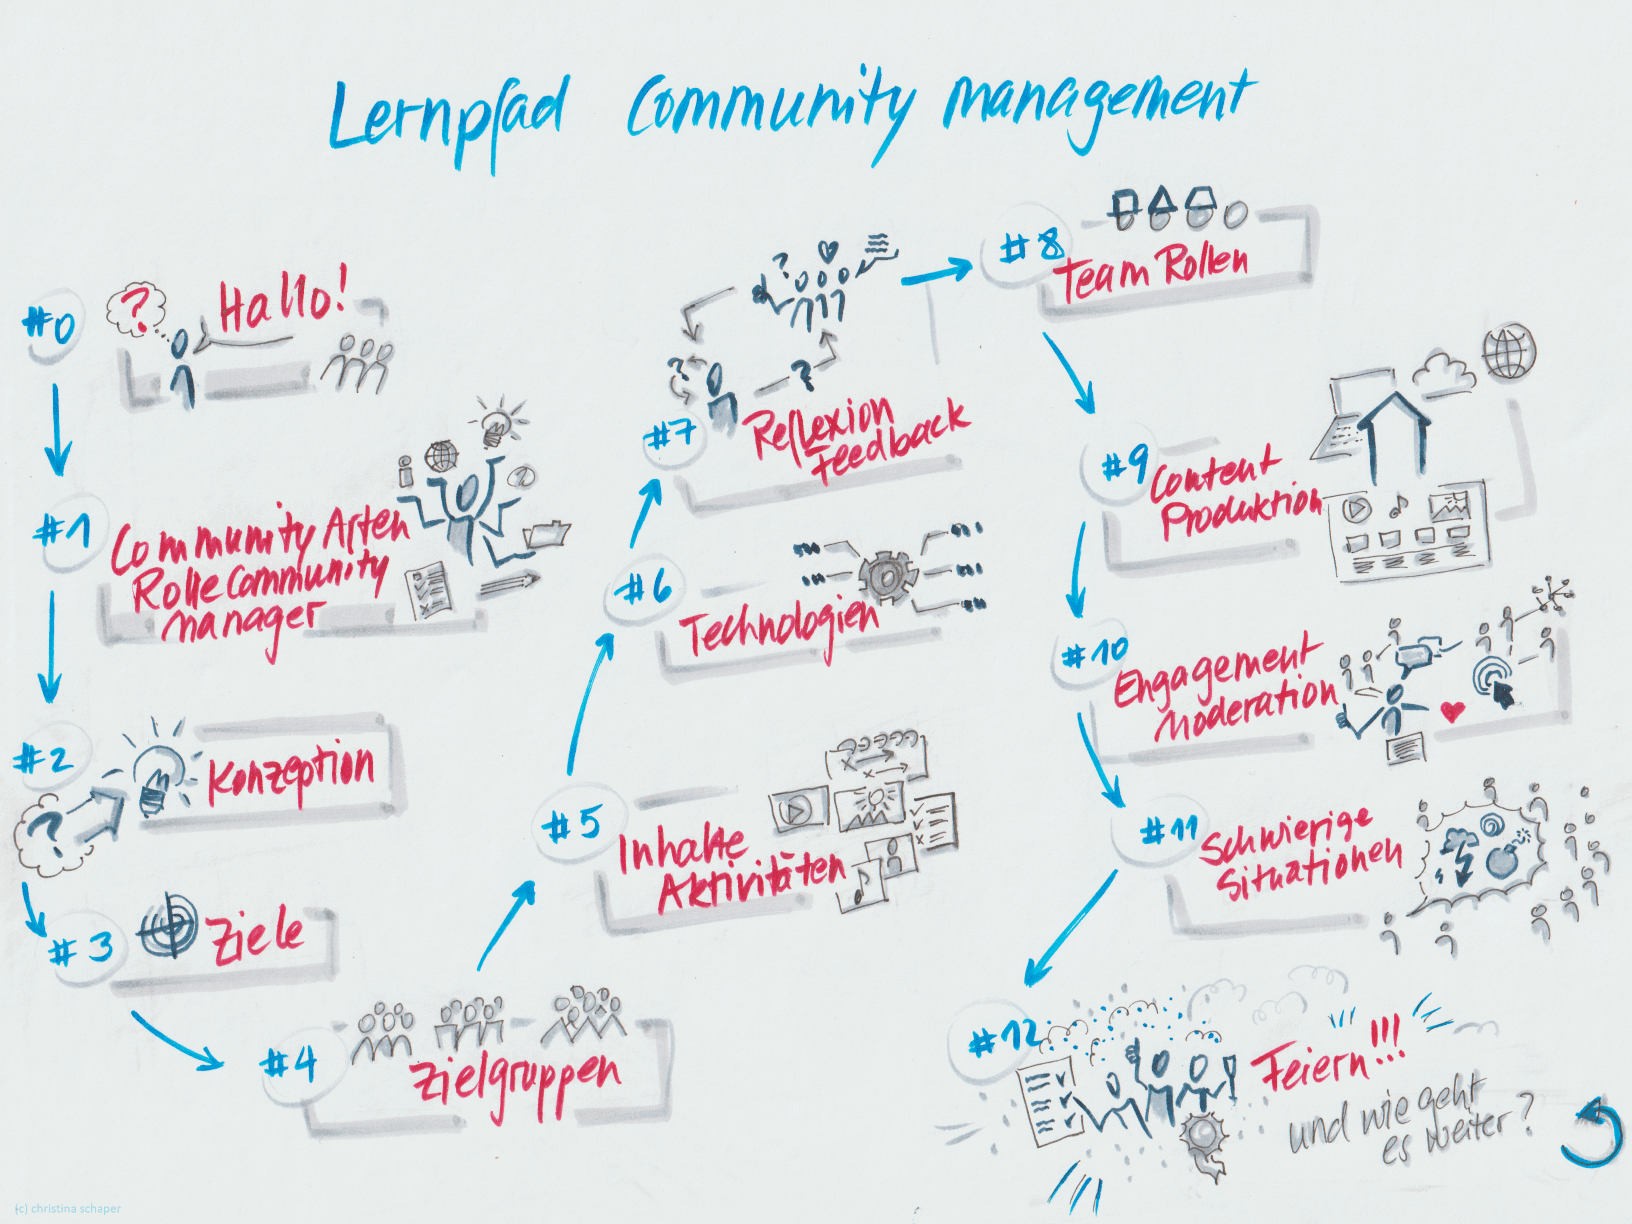 Lernpfad Community management
#0
?
Hallo!
#1
Community Arten
Rolle Community
manager
#2
?
Konzeption
#3
Ziele
#4
Zielgruppen
#5
Inhalte
Aktivitäten
#6
Technologien
#7
?
?
?
Reflexion
Feedback
#8
Team Rollen
#9
Content
Produktion
#10
Engagement
Moderation
#11
Schwierige
Situationen
#12
Feiern!!!
und wie geht
es weiter?
(c) christina schaper